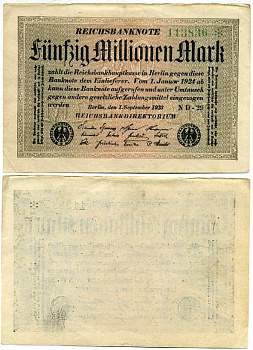 REICHSBANKNOTE
Fünfzig Millionen Mark
zahlt die Reichsbankhauptkasse in Berlin gegen diese
Banknote dem Einlieferer. Vom 1. Januar 1924 ab
kann diese Banknote aufgerufen und unter Umtausch
gegen andere gesetzliche Zahlungsmittel eingezogen
werden
Berlin, den 1. September 1923
REICHSBANKDIREKTORIUM